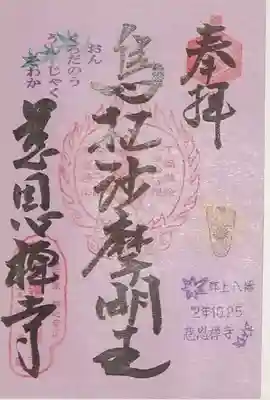 奉拝
郡上八幡
2年10.25
慈恩禅寺
烏枢沙摩明王
おん
くろだのう
うんじゃく
そわか
慈恩禅寺